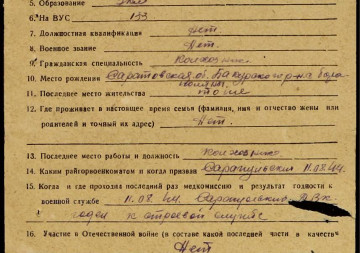 5. Образование
6. На ВУС 133
7. Должностная квалификация нет
8. Военное звание Нет.
9. Гражданская специальность Колхозник.
10. Место рождения Саратовская об.
11. Последнее место жительства тоже
12. Где проживает в настоящее время семья (фамилия, имя и отчество жены или
родителей и точный их адрес) Нет.
13. Последнее место работы и должность колхозник.
14. Каким райгорвоенкоматом и когда призван 11.08.44.
15. Когда и где проходил последний раз медкомиссию и результат годности к
военной службе 11.08.44.
годен к строевой службе
16. Участие в Отечественной войне (в составе какой последней части и в качестве
Нет